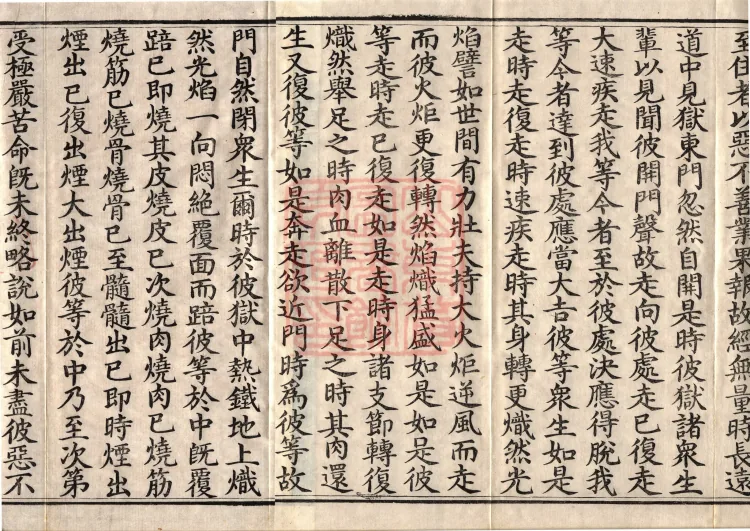 至住者以惡不善業果報故經無量時長遠
道中見獄東門忽然自開是時彼獄諸衆生
輩以見聞彼開門聲故走向彼處走已復走
大速疾走我等今者至於彼處決應得脫我
等今者達到彼處應當大吉彼等衆生如是
走時走復走時速疾走時其身轉更熾然光
焰譬如世間有力壯夫持大火炬逆風而走
而彼火炬更復轉然焰熾猛盛如是如是彼
等走時走已復走如是走時身諸支節轉復
熾然舉足之時肉血離散下足之時其肉還
生又復彼等如是奔走欲近門時爲彼等故
門自然閉衆生爾時於彼獄中熱鐵地上熾
然光焰一向悶絶覆面而踣彼等於中旣覆
踣已即燒其皮燒皮已次燒肉燒肉已燒筋
燒筋已燒骨燒骨已至髓髓出已即時煙出
煙出已復出煙大出煙彼等於中乃至次第
受極嚴苦命旣未終略說如前未盡彼惡不